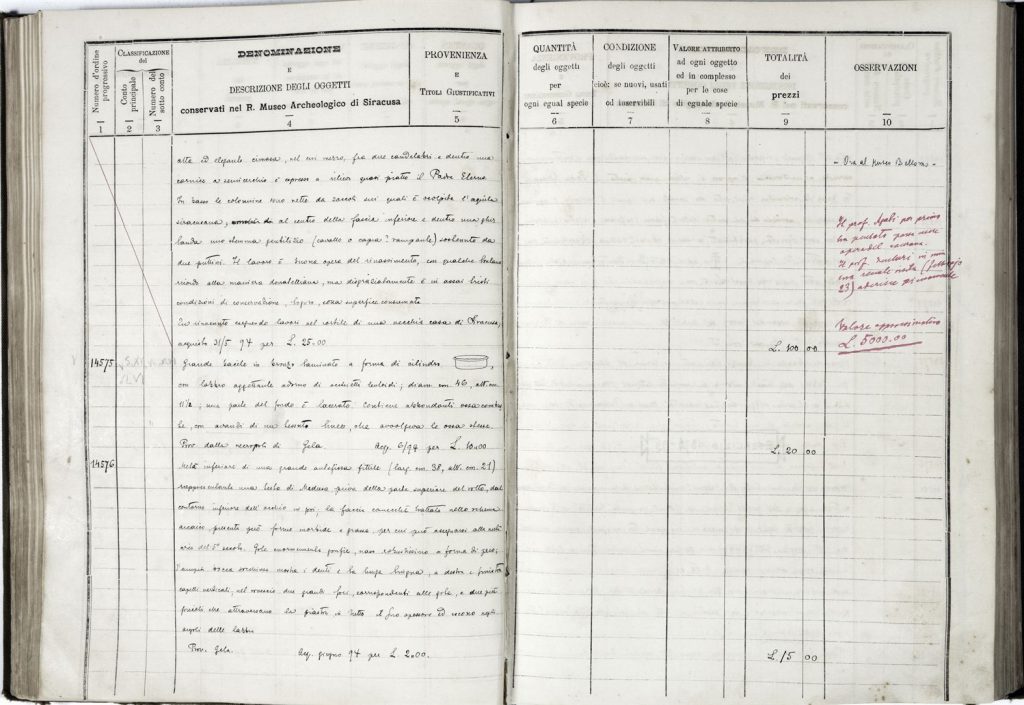 Numero d'ordine progressivo
CLASSIFICAZIONE del
Conto principale
Numero del sotto conto
DENOMINAZIONE
E
DESCRIZIONE DEGLI OGGETTI
conservati nel R. Museo Archeologico di Siracusa
PROVENIENZA
E
TITOLI GIUSTIFICATIVI
QUANTITÀ
degli oggetti
per
ogni egual specie
CONDIZIONE
degli oggetti
cioè: se nuovi, usati
od inservibili
VALORE ATTRIBUITO
ad ogni oggetto
ed in complesso
per le cose
di eguale specie
TOTALITÀ
dei
prezzi
OSSERVAZIONI
1 2 3 4 5 6 7 8 9 10
alta ed elegante cimasa, nel cui mezzo, fra due candelabri e dentro una
cornice a semicerchio è espresso a rilievo quasi piatto il Padre Eterno
In basso le colonnine sono rette da zoccoli sui quali è scolpita l'aquila
siracusana; al centro della fascia inferiore e dentro una ghir
landa uno stemma gentilizio (cavallo o capra? rampante) sostenuto da
due puttini. Il lavoro è buona opera del rinascimento, con qualche
alla maniera donatelliana, ma disgraziatamente è in assai tristi
condizioni di conservazione, logora, cosa superficie consumata
Fu rinvenuto eseguendo lavori nel cortile di una vecchia casa di Siracusa,
acquisto 31/5 94 per L. 25.00
L. 100 00
- Ora al Museo Bellomo -
Il prof. Agati per primo
ha pensato possa essere
opera del
Il prof. in una
sua nota (febbraio
23) aderisce
Valore approssimativo
L. 5000.00
14575
Grande bacile in bronzo laminato a forma di cilindro,
con labbro aggettante adorno di; diam. cm. 46, alt. cm.
11½; una parte del fondo è lacerata. Contiene abbondanti ossa combu
ste, con avanzi di un tessuto bianco, che avvolgeva le ossa stesse.
Prov. dalla necropoli di Gela. Acq. 6/94 per L. 10.00
L. 20 00
14576
Metà inferiore di una grande antefissa fittile (larg. cm. 38, alt. cm. 21)
rappresentante una testa di Medusa priva della parte superiore del volto, dal
contorno inferiore dell'occhio in poi; la faccia canicchè trattata nello schema
arcaico, presenta però forme morbide e grasse, per cui può assegnarsi alla metà
circa del 5° secolo. Gote enormemente gonfie, naso robustissimo a forma di
l'ampia bocca mostra i denti e la lunga lingua, a destra e sinistra
capelli verticali, nel due grandi fori, corrispondenti alle gote, e due più
piccoli che attraversano la piastra in tutto il suo spessore ed escono negli
angoli delle labbra
Prov. Gela. Acq. giugno 94 per L. 2.00.
L. 15 00